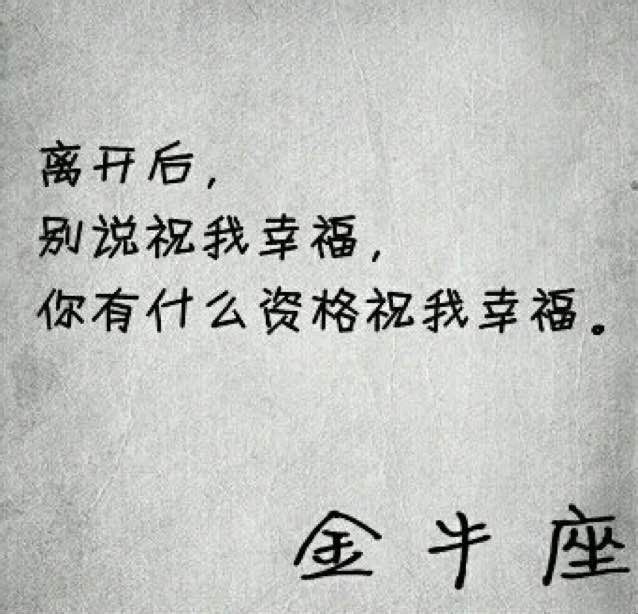 离开后,
别说祝我幸福,
你有什么资格祝我幸福。
金牛座